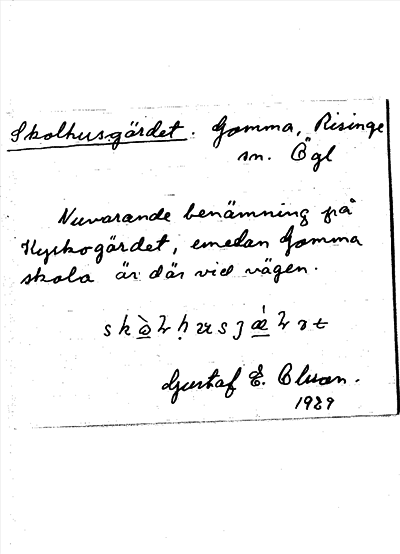 Skolhusgärdet. Gomma, Risinge
sn. Ögl
Nuvarande benämning på
Kyrkogärdet, emedan Gomma
skola är där vid vägen.
Gustaf E.
1929